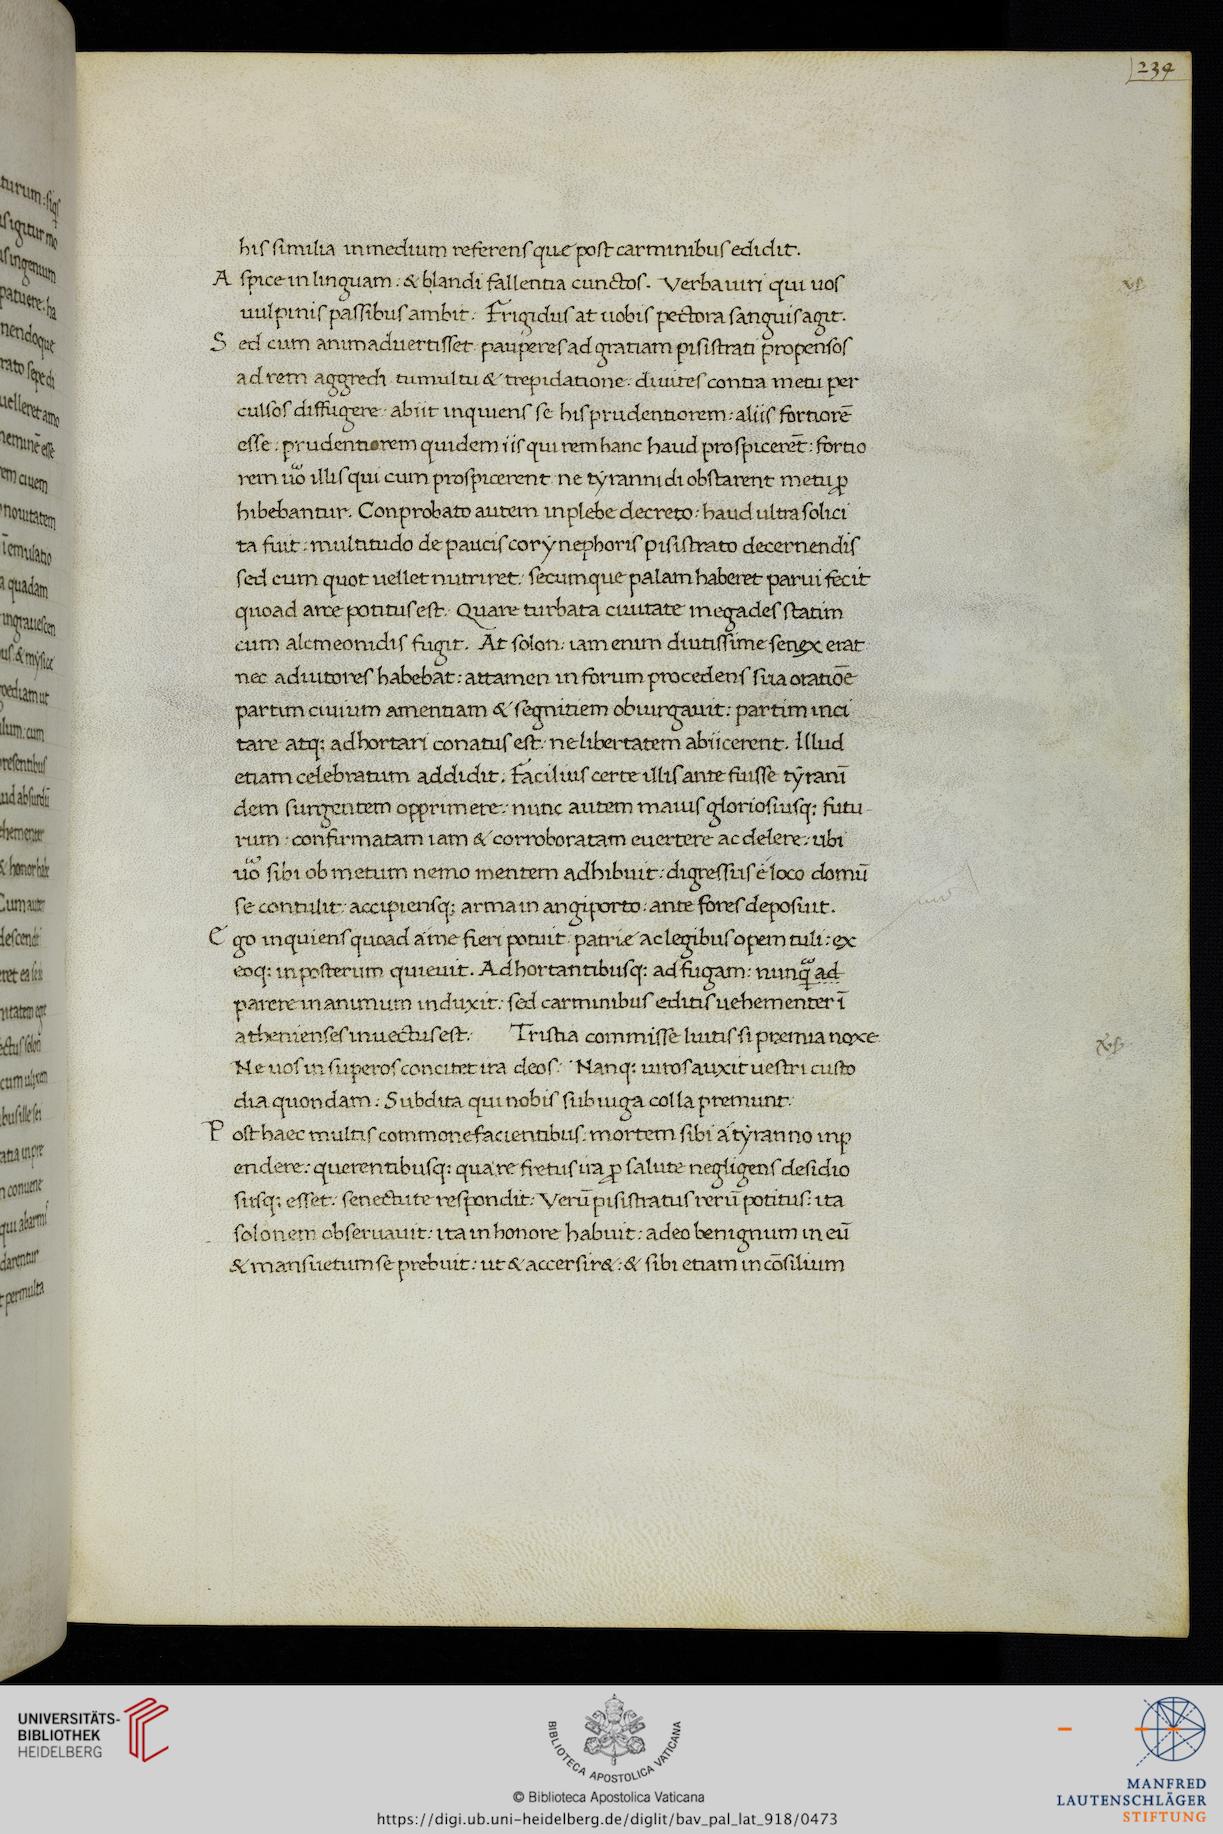 234
his similia in medium referens que post carminibus edidit.
Aspice in linguam: & blandi fallentia cunctos. Verba uiri qui uos
uulpinis passibus ambit: Frigidus at uobis pectora sanguis agit.
Sed cum animaduertisset pauperes ad gratiam pisistrati propensos
ad rem aggredi tumultu & trepidatione: diuites contra metu per
culsos diffugere: abiit inquiens se his prudentiorem: aliis fortiorē
esse: prudentiorem quidem iis qui rem hanc haud prospicerēt: fortio
rem uo illis qui cum prospicerent ne tyrannidi obstarent metu ꝓ
hibebantur. Conprobato autem in plebe decreto: haud ultra solici
ta fuit: multitudo de paucis corynephoris pisistrato decernendis
sed cum quot uellet nutriret: secumque palam haberet parui fecit
quoad arce potitus est. Quare turbata ciuitate megades statim
cum alcmeonidis fugit. At solon: iam enim diutissime senex erat
nec adiutores habebat: attamen in forum procedens sua oratiōe
partim ciuium amentiam & segnitiem obiurgauit: partim inci
tare atq; adhortari conatus est: ne libertatem abiicerent. Illud
etiam celebratum addidit. Facilius certe illis ante fuisse tyranī
dem surgentem opprimere: nunc autem maius gloriosiusq; futu-
rum: confirmatam iam & corroboratam euertere ac delere: ubi
uo sibi ob metum nemo mentem adhibuit: digressus é loco domū
se contulit: accipiensq; arma in angiporto: ante fores deposuit.
Ego inquiens quoad á me fieri potuit patrie ac legibus opem tuli: ex
eoq; in posterum quieuit. Adhortantibusq; ad fugam: nunq̄ ad
parere in animum induxit: sed carminibus editis uehementer ī
athenienses inuectus est: Tristia commisse luitis si premia noxe
Ne uos in superos concitet ira deos: Nanq; uiros auxit uestri custo
dia quondam: Subdita qui nobis sub iuga colla premunt.
Post haec multis commonefacientibus: mortem sibi á tyranno inp
endere: querentibusq; quare fretus ita ꝓ salute negligens desidio
susq; esset: senectute respondit: Verū pisistratus rerū potitus: ita
solonem obseruauit: ita in honore habuit: adeo benignum in eū
& mansuetum se prebuit: ut & accersir&: & sibi etiam in cōsilium
UNIVERSITÄTS-
BIBLIOTHEK
HEIDELBERG
BIBLIOTECA APOSTOLICA VATICANA
© Biblioteca Apostolica Vaticana
https://digi.ub.uni-heidelberg.de/diglit/bav_pal_lat_918/0473
MANFRED
LAUTENSCHLÄGER
STIFTUNG